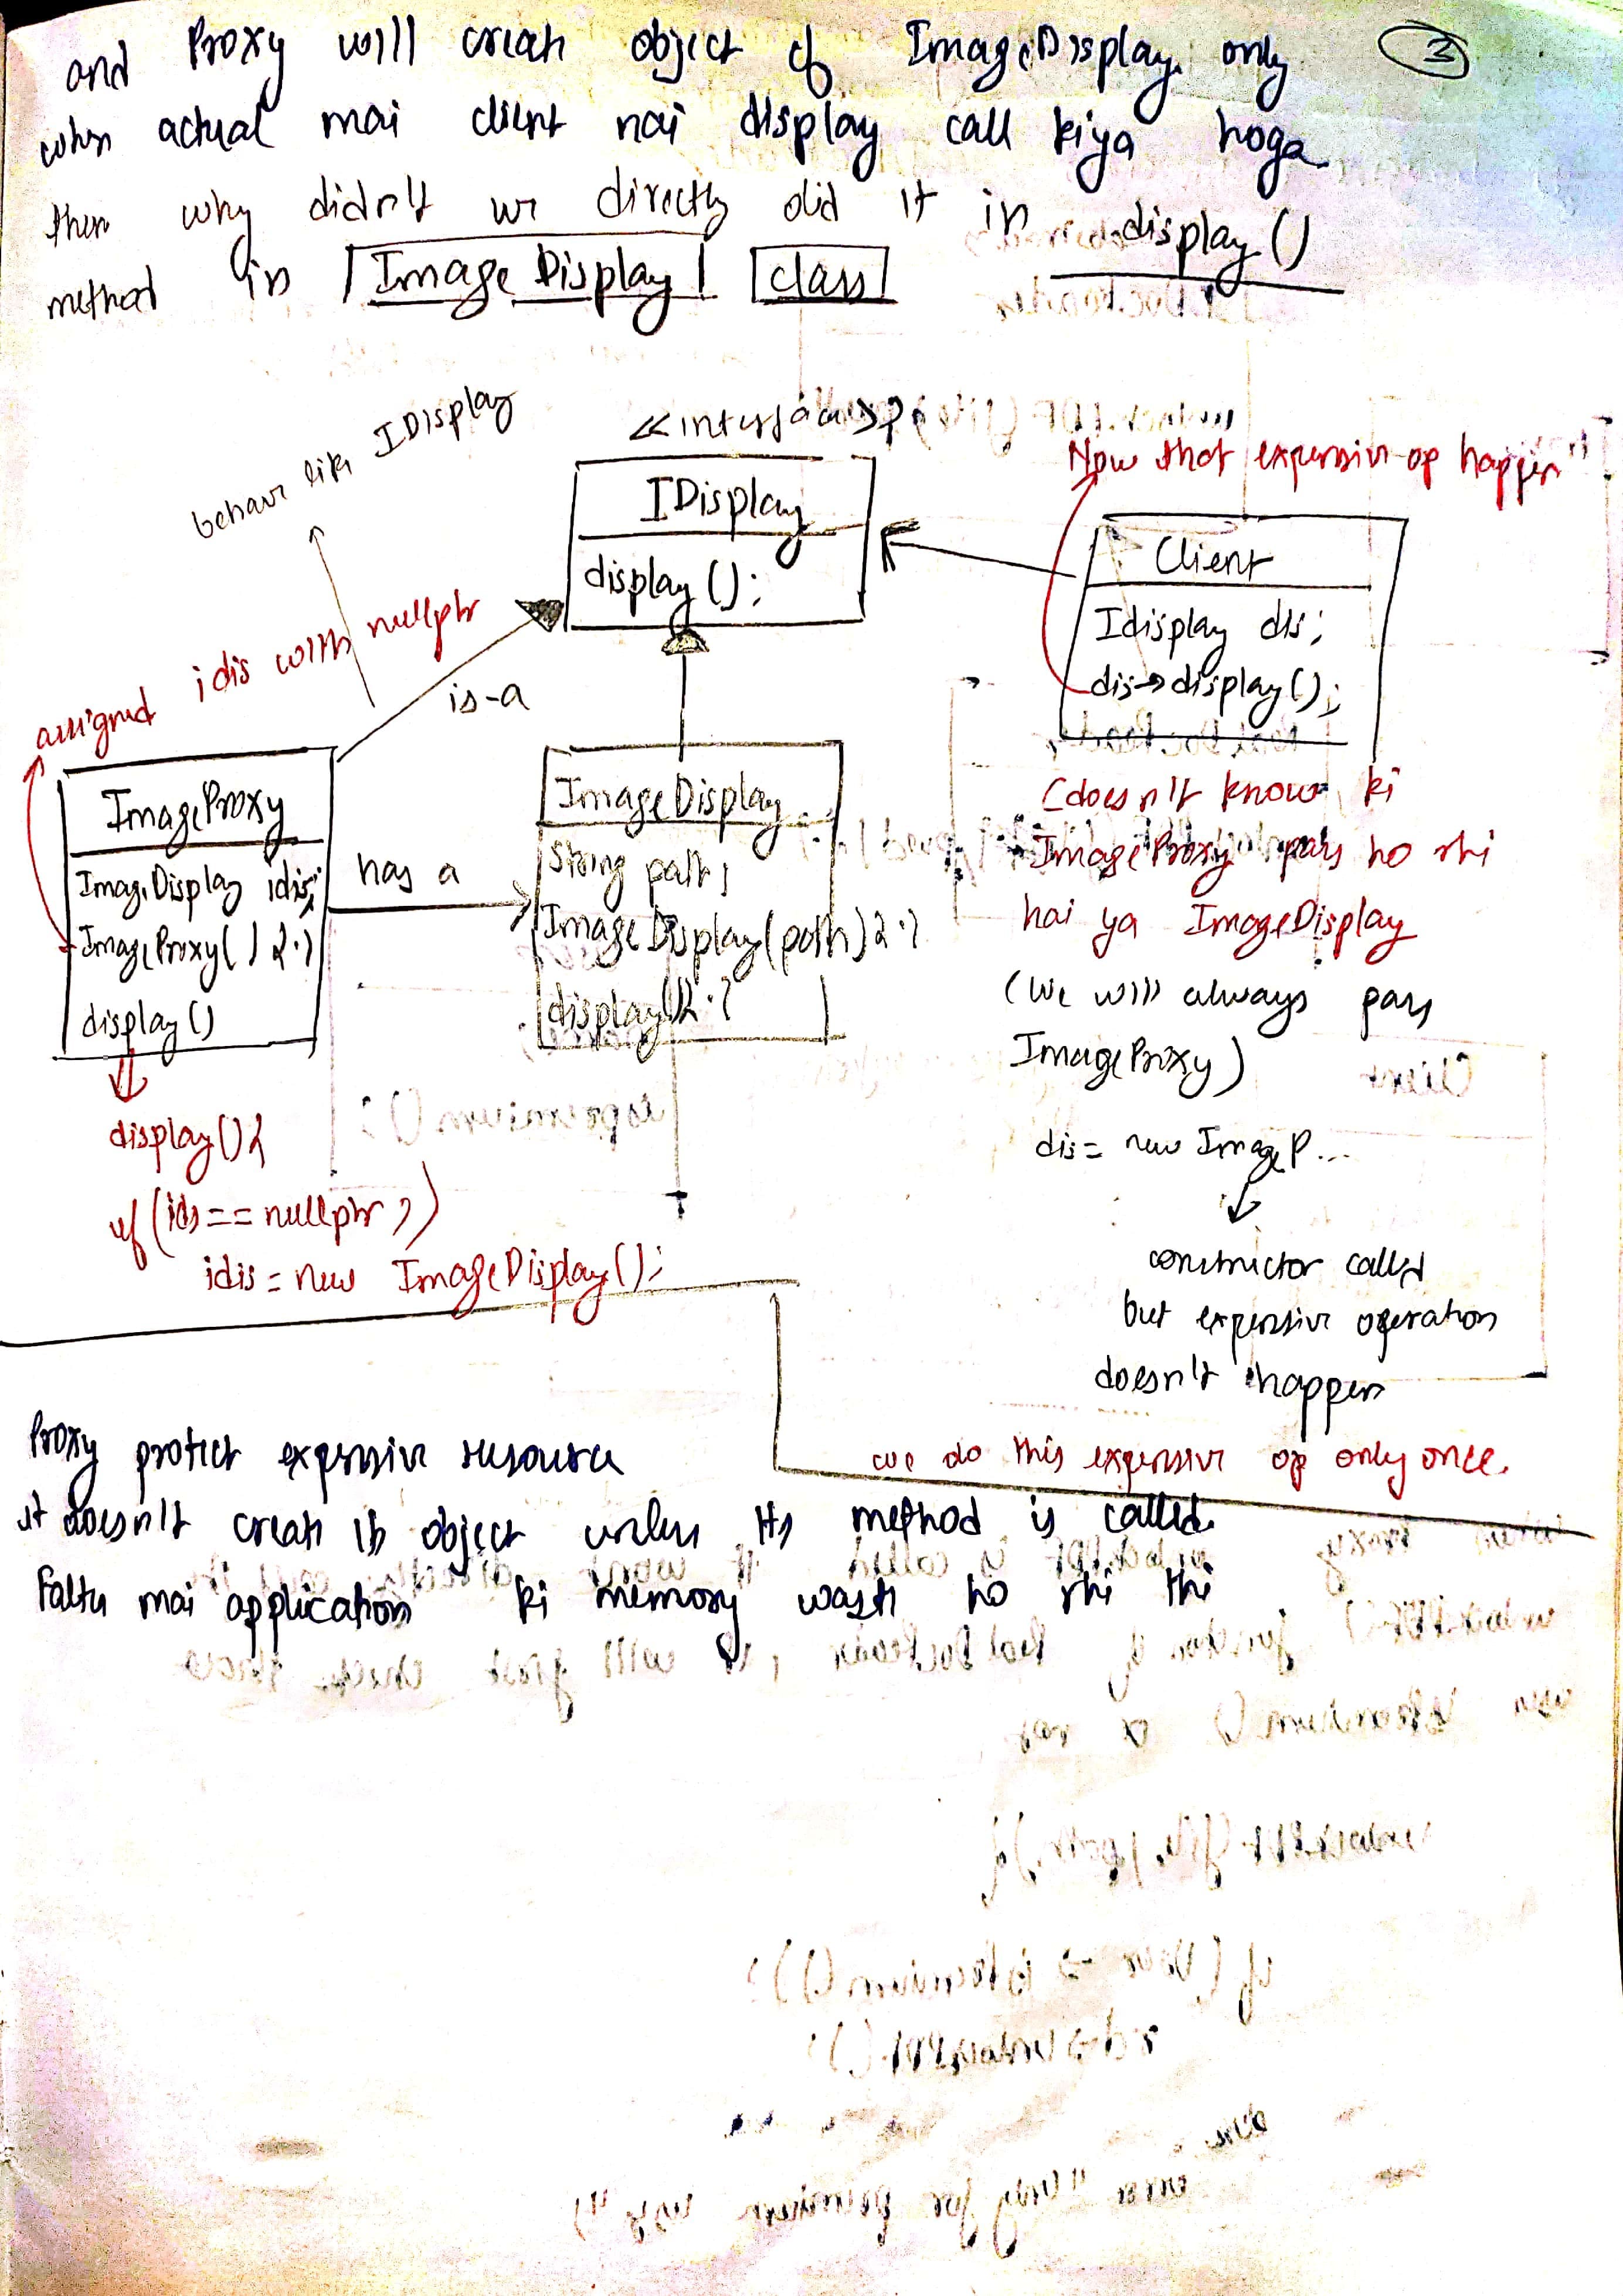 and Proxy will create object of ImageDisplay only
3
when actual mai client nai display call kiya hoga
then why didn't we directly did it in display()
method in ImageDisplay class
behave like IDisplay
<<interface>>
IDisplay
display();
Now that expensive op happen"
Client
Idisplay dis;
dis→display();
assigned idis with nullptr
is-a
ImageProxy
ImageDisplay idis;
ImageProxy() {.}
display()
has a
ImageDisplay
String path;
ImageDisplay(path) {.}
display() {.}
(doesn't know ki
ImageProxy pass ho rhi
hai ya ImageDisplay
(We will always pass
ImageProxy)
display() {
if (idis == nullptr)
idis = new ImageDisplay();
dis = new ImageP...
constructor called
but expensive operation
doesn't happen
we do this expensive op only once.
Proxy protect expensive resource
it doesn't create its object unless its method is called.
Faltu mai application ki memory waste ho rhi thi